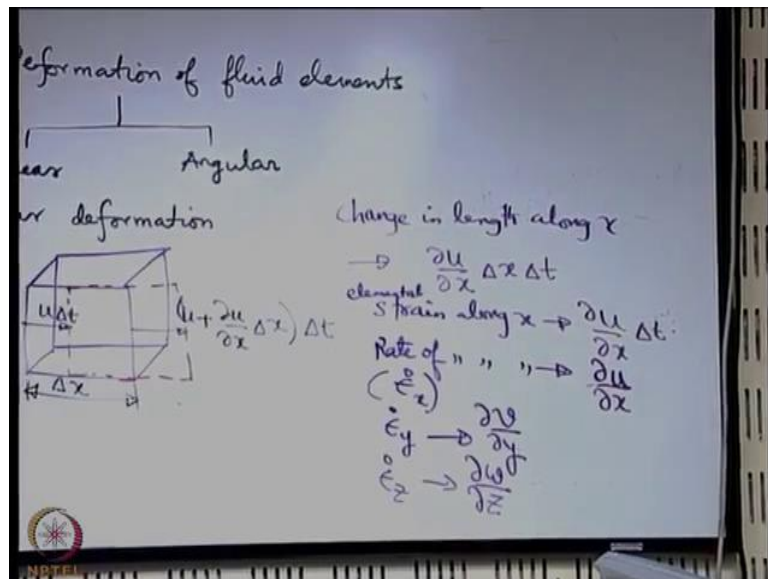 eformation of fluid elements
ear
Angular
ar deformation
Change in length along x
→ ∂u/∂x Δx Δt
elemental
Strain along x → ∂u/∂x Δt.
Rate of " " " → ∂u/∂x
(ε̇x)
ε̇y → ∂v/∂y
ε̇z → ∂w/∂z
uΔt
(u + ∂u/∂x Δx) Δt
Δx
NPTEL